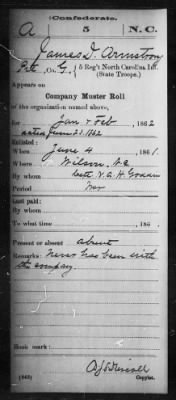 Confederate.
A 5 N.C.
James J. Armstrong
Pvt, Co. G, 5 Reg't North Carolina Inf.
(State Troops.)
Appears on
Company Muster Roll
of the organization named above,
for Jan & Feb, 1862
dated June 23, 1862
Enlisted:
When June 4, 1861
Where Wilson, N.C.
By whom Capt. N. A. H.
Period War
Last paid:
By whom
To what time, 186
Present or absent absent
Remarks: Never has been with
the company.
Book mark:
(642) Copyist.